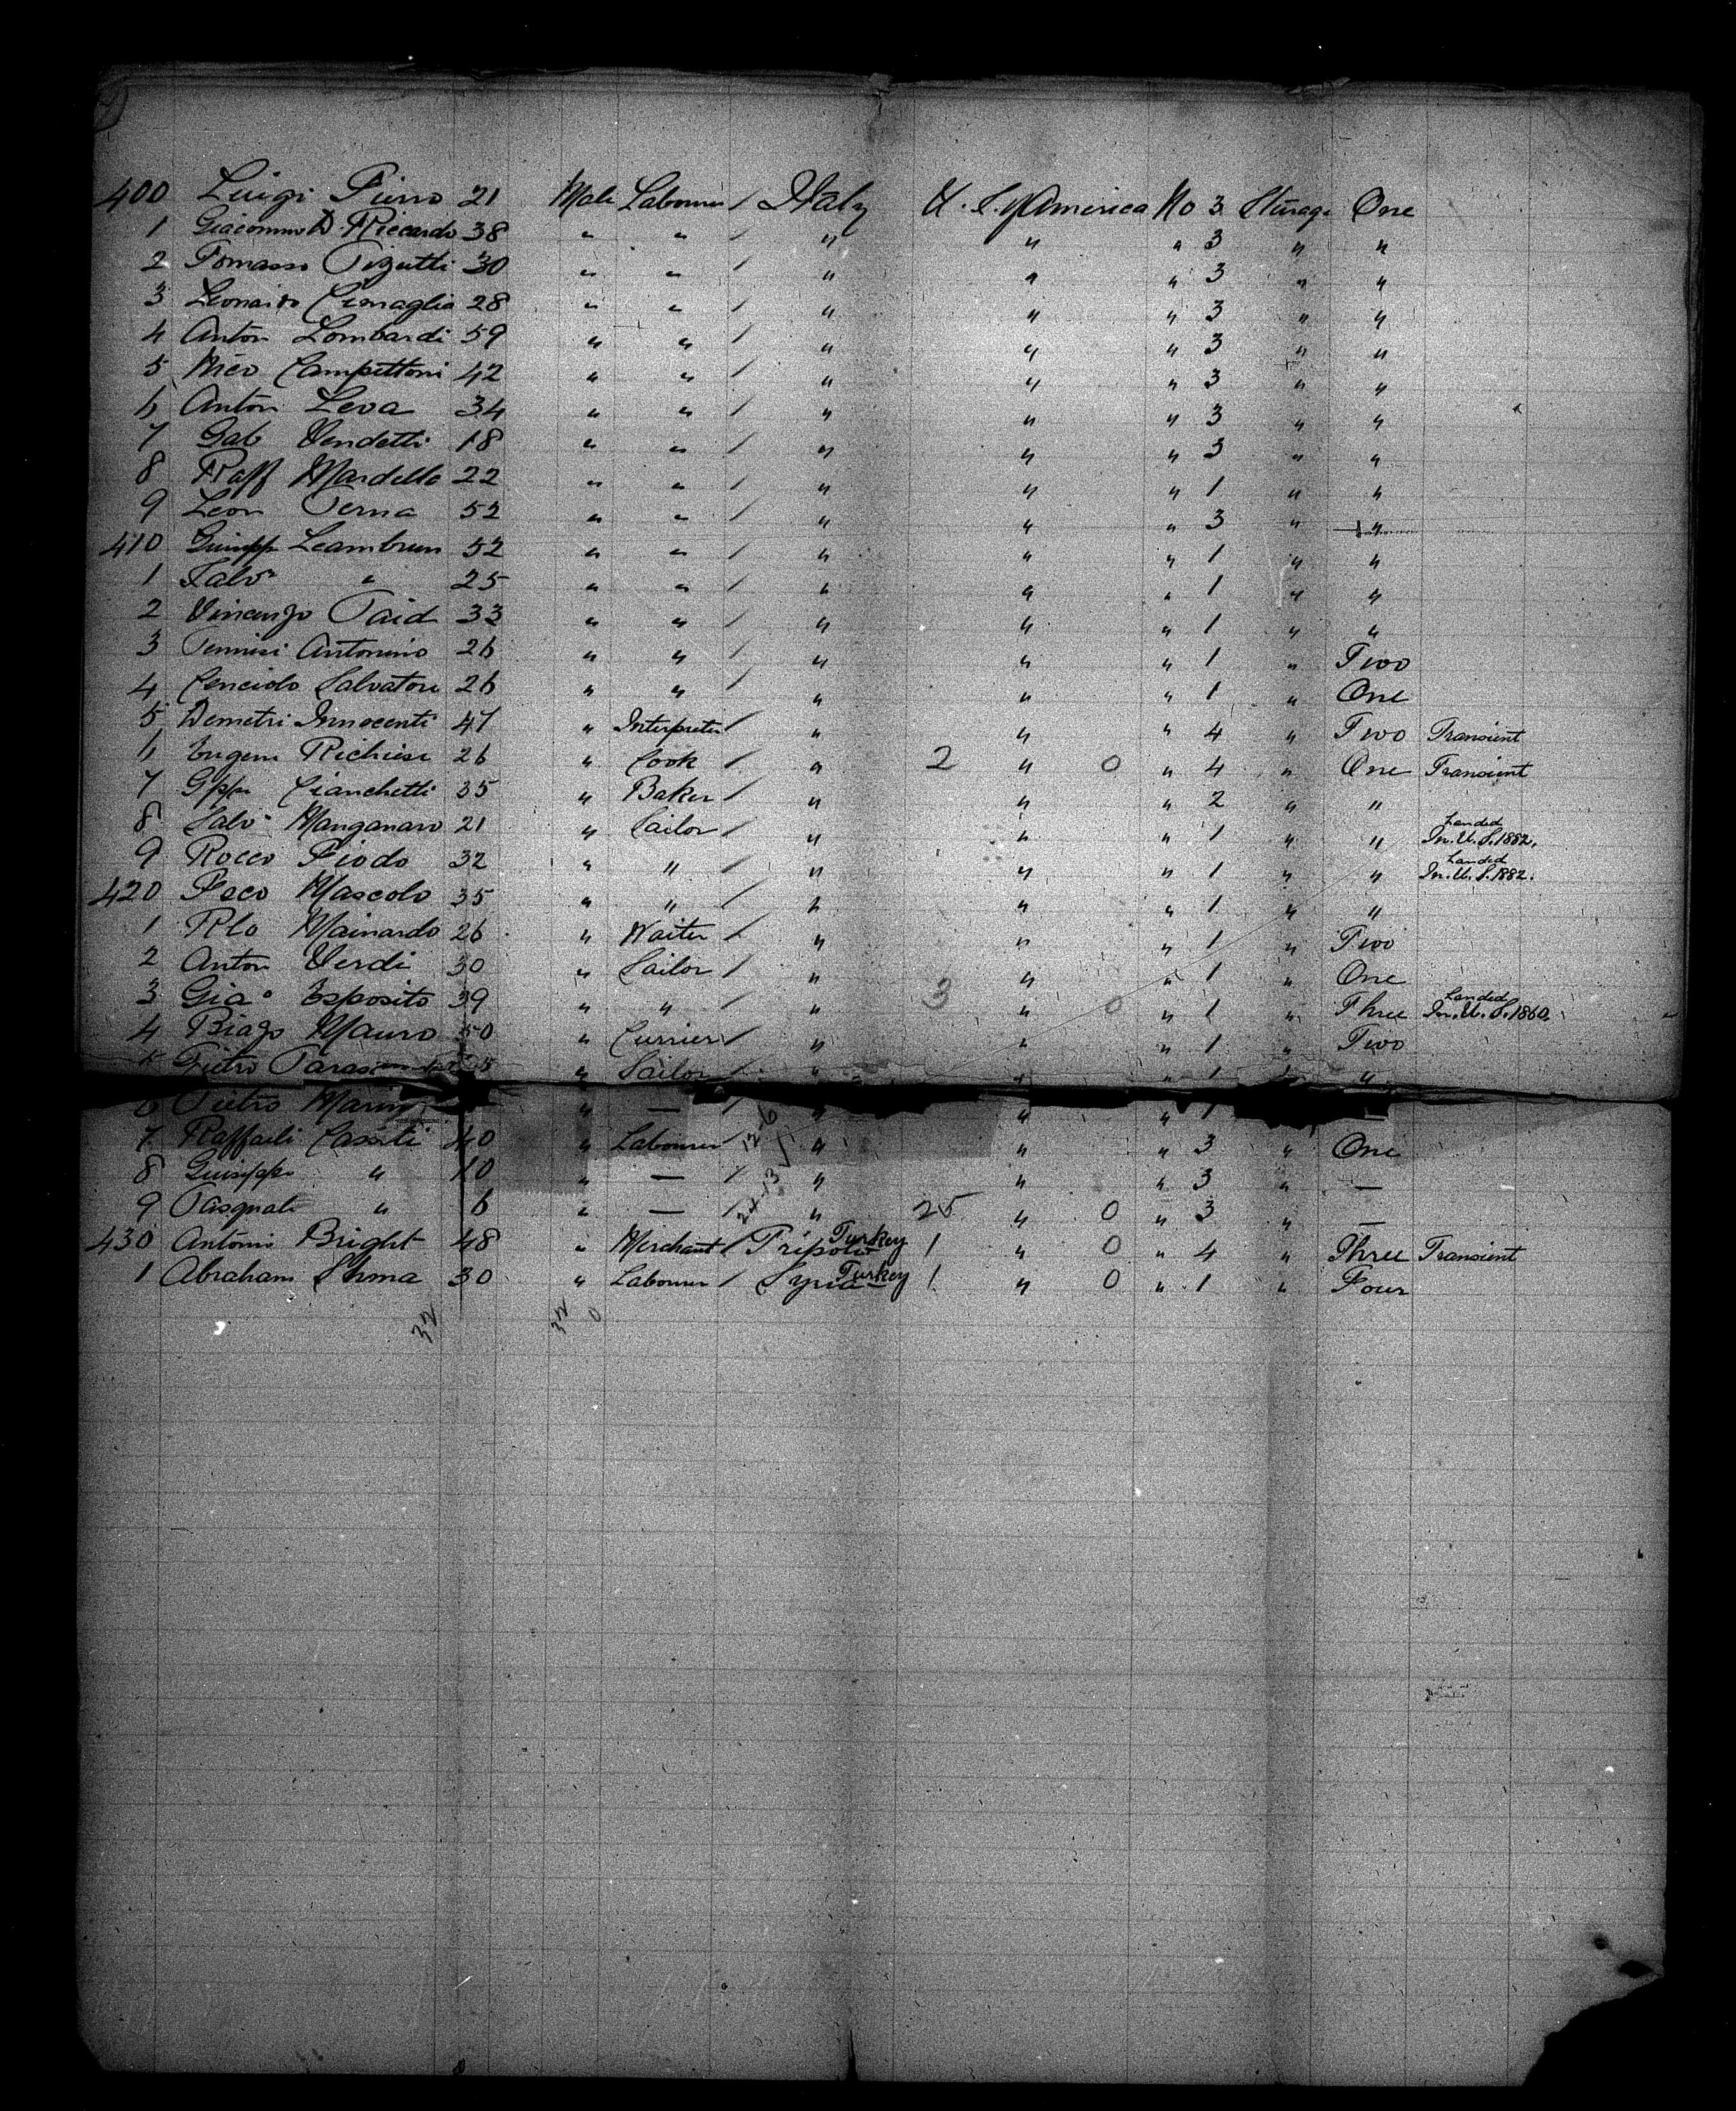 400 Luigi Pierro 21 Male Labourer / Italy U. S. of America No 3 Sturage One
1 Giacommo D. Riccardo 38 " " / " " " 3 " "
2 Tomasso Pizutti 30 " " / " " " 3 " "
3 Leonardo Cimaglia 28 " " / " " " 3 " "
4 Anton Lombardi 59 " " / " " " 3 " "
5 Nico Campettoni 42 " " / " " " 3 " "
6 Anton Leva 34 " " / " " " 3 " "
7 Gab Vendetti 18 " " / " " " 3 " "
8 Raff Mardello 22 " " / " " " 1 " "
9 Leon Perna 52 " " / " " " 3 " "
410 Guisepp 52 " " / " " " 1 " "
1 Salvr " 25 " " / " " " 1 " "
2 Vincenzo Paid 33 " " / " " " 1 " "
3 Antonino 26 " " / " " " 1 " Two
4 Cenciolo Salvatore 26 " " / " " " 1 " One
5 Demetri Innocenti 47 " Interpreter / " " " 4 " Two Transient
6 Eugene Richiesi 26 " Cook / " 2 " 0 " 4 " One Transient
7 Gppe Cianchetti 35 " Baker / " " " 2 " "
8 Salvr Manganaro 21 " Sailor / " " " 1 " " Landed In. U. S. 1882.
9 Rocco Fiodo 32 " " / " " " 1 " " Landed In. U. S. 1882.
420 Fsco Mascolo 35 " " / " " " 1 " "
1 Rlo Mainardo 26 " Waiter / " " " 1 " Two
2 Anton Verdi 30 " Sailor / " " " 1 " One
3 Giao Esposito 39 " " / " 3 " 0 " 1 " Three Landed In. U. S. 1860.
4 Biago Mauro 50 " Currier / " " " 1 " Two
5 Pietro " Sailor / " " " 1 " "
6 Pietro " — / " " " 1 —
7 Raffaeli Cassili 40 " Labourer / " " " 3 " One
8 Guiseppe " 10 " — / " " " 3 " —
9 Pasquali " 6 " — / " 25 " 0 " 3 " —
430 Antonio Bright 48 " Merchant / Tripoli Turkey 1 " 0 " 4 " Three Transient
1 Abraham Shma 30 " Labourer / Syria Turkey 1 " 0 " 1 " Four
32 32 0